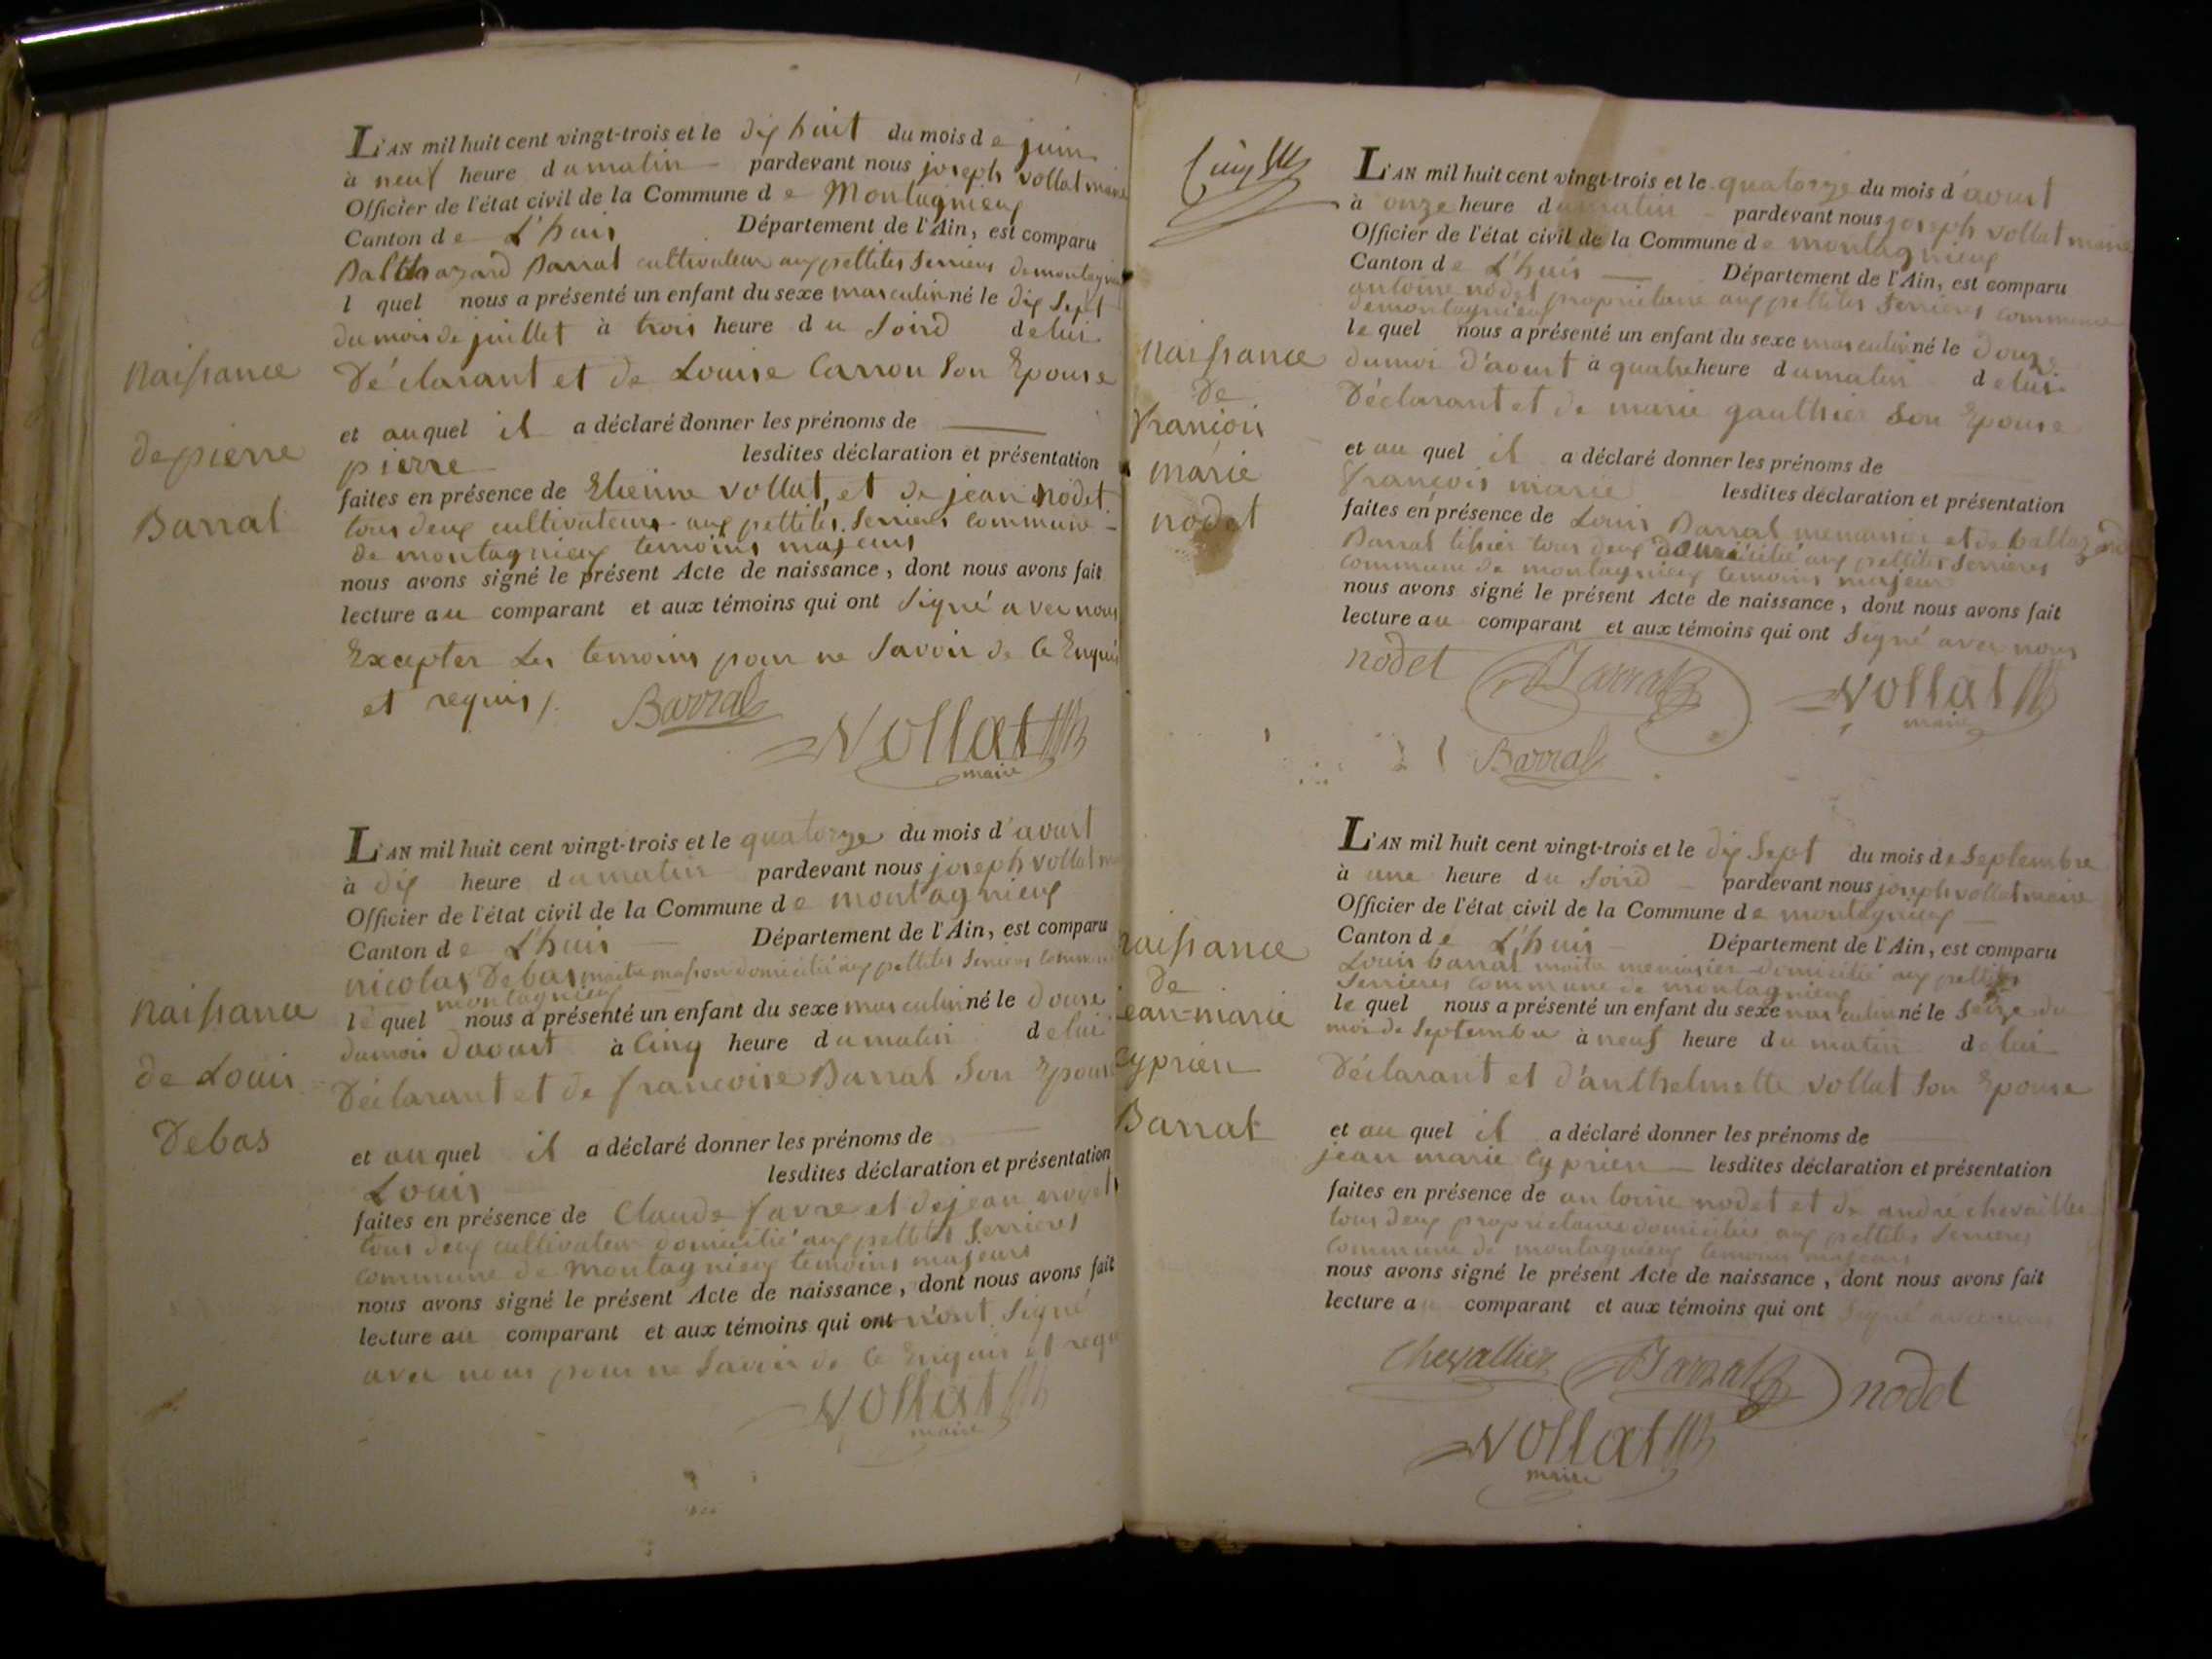 Naissance
de pierre
Barral
L'AN mil huit cent vingt-trois et le dix huit du mois de juin
à neuf heure du matin pardevant nous joseph vollat maire
Officier de l'état civil de la Commune de Montagnieux
Canton de L'huis Département de l'Ain, est comparu
Balthazard Barral cultivateur aux pettites Serrieres de montagnieux
l quel nous a présenté un enfant du sexe masculin né le dix sept
du mois de juillet à trois heure du soird de lui
Déclarant et de Louise Carron son Epouse
et auquel il a déclaré donner les prénoms de
pierre lesdites déclaration et présentation
faites en présence de Etienne vollat, et de jean Nodet
tous deux cultivateurs aux pettites Serrieres commune
de montagnieux temoins majeurs
nous avons signé le présent Acte de naissance, dont nous avons fait
lecture au comparant et aux témoins qui ont signé avec nous
Excepter Les temoins pour ne savoir de ce Enquis
et requis /.
Barral
Vollat
maire
Naissance
de Louis
Debas
L'AN mil huit cent vingt-trois et le quatorze du mois d'avust
à dix heure du matin pardevant nous joseph vollat
Officier de l'état civil de la Commune de montagnieux
Canton de L'huis Département de l'Ain, est comparu
nicolas Debas maitre masson domicilié aux pettites Serrieres commune
montagnieux
le quel nous a présenté un enfant du sexe masculin né le douse
du mois davust à cinq heure du matin de lui
Déclarant et de francoise Barral son Epouse
et au quel il a déclaré donner les prénoms de
Louis lesdites déclaration et présentation
faites en présence de Claude favre et de jean nodet
tous deux cultivateur domicilié aux pettites Serrieres
commune de Montagnieux temoins majeurs
nous avons signé le présent Acte de naissance, dont nous avons fait
lecture au comparant et aux témoins qui ont n'ont signé
avec nous pour ne savoir de ce Enquis et requ
Vollat
maire
Naissance
De
francois
marie
nodet
L'AN mil huit cent vingt-trois et le quatorze du mois d'avust
à onze heure du matin pardevant nous joseph vollat maire
Officier de l'état civil de la Commune de montagnieux
Canton de L'huis Département de l'Ain, est comparu
antoine nodet proprietaire aux pettites Serrieres commune
de montagnieux
le quel nous a présenté un enfant du sexe masculin né le douze
du moi d'avust à quatre heure du matin de lui
Déclarant et de marie gauthier son Epouse
et au quel il a déclaré donner les prénoms de
francois marie lesdites déclaration et présentation
faites en présence de Louis Barral menusier et de baltazard
Barral tissier tous deux domicilié aux pettites Serrieres
commune de montagnieux temoins majeur
nous avons signé le présent Acte de naissance, dont nous avons fait
lecture au comparant et aux témoins qui ont signé avec nous
nodet Barral Vollat
maire
Barral
Naissance
De
jean-marie
cyprien
Barral
L'AN mil huit cent vingt-trois et le dix sept du mois de Septembre
à une heure du soird pardevant nous joseph vollat maire
Officier de l'état civil de la Commune de montagnieux
Canton de L'huis Département de l'Ain, est comparu
Louis barral maitre menusier domicilié aux pettites
Serrieres commune de montagnieux
le quel nous a présenté un enfant du sexe masculin né le seize du
moi de Septembre à neuf heure du matin de lui
Déclarant et d'anthelmette vollat son Epouse
et au quel il a déclaré donner les prénoms de
jean marie cyprien lesdites déclaration et présentation
faites en présence de antoine nodet et de andré chevallier
tous deux proprietaires domiciliés aux pettites Serrieres
commune de montagnieux temoins majeurs
nous avons signé le présent Acte de naissance, dont nous avons fait
lecture au comparant et aux témoins qui ont signé avec nous
Chevallier Barral nodet
Vollat
maire